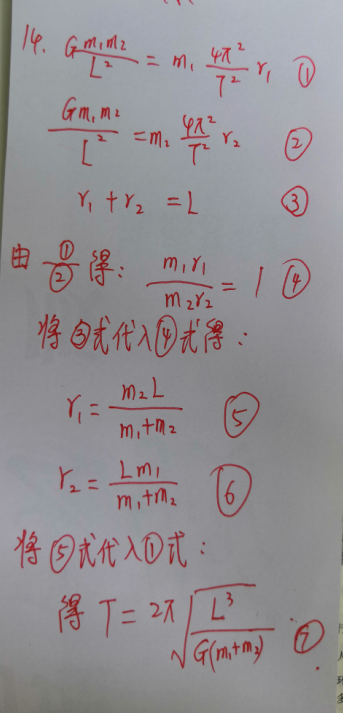 14. Gm₁m₂/L² = m₁ 4π²/T² r₁ ①
Gm₁m₂/L² = m₂ 4π²/T² r₂ ②
r₁ + r₂ = L ③
由 ①/② 得: m₁r₁/m₂r₂ = 1 ④
将③式代入④式得:
r₁ = m₂L/m₁+m₂ ⑤
r₂ = Lm₁/m₁+m₂ ⑥
将⑤式代入①式:
得 T = 2π√L³/G(m₁+m₂) ⑦